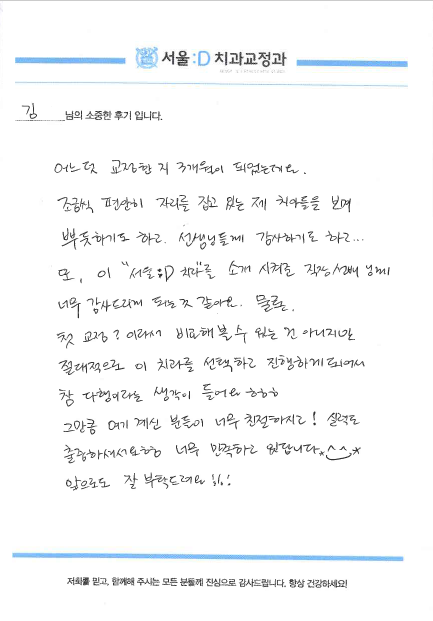 서울:D 치과교정과
김 님의 소중한 후기 입니다.
어느덧 교정한 지 3개월이 되었는데요.
조금씩 편안히 자리를 잡고 있는 제 치아들을 보며
뿌듯하기도 하고. 선생님들께 감사하기도 하고...
또, 이 "서울:D 치과"를 소개 시켜준 직장선배 님께
너무 감사드리게 되는 것 같아요. 물론.
첫 교정? 이라서 비교해 볼 수 있는 건 아니지만
절대적으로 이 치과를 선택하고 진행하게 되어서
참 다행이라는 생각이 들어요 ㅎㅎㅎ
그만큼 여기 계신 분들이 너무 친절하시고! 실력도
출중하셔서요ㅎㅎ 너무 만족하고 있답니다*^^*
앞으로도 잘 부탁드려요!!!
저희를 믿고, 함께해 주시는 모든 분들께 진심으로 감사드립니다. 항상 건강하세요!